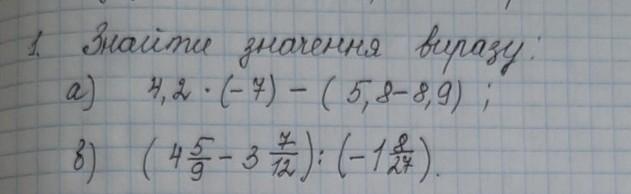 1. Знайти значення виразу:
а) 4,2 · (-7) - ( 5,8-8,9) ;
в) ( 4 5/9 - 3 7/12 ) : ( -1 8/27 ).